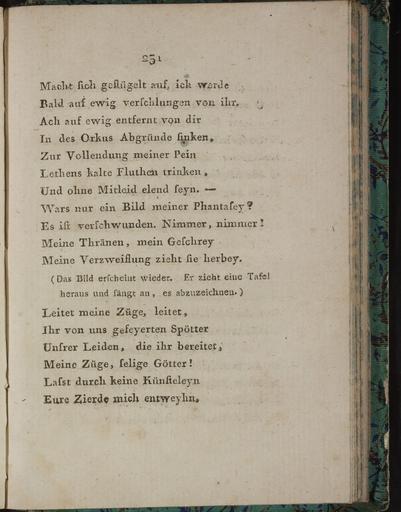 251
Macht ſich geflügelt auf, ich werde
Bald auf ewig verſchlungen von ihr.
Ach auf ewig entfernt von dir
In des Orkus Abgründe ſinken,
Zur Vollendung meiner Pein
Lethens kalte Fluthen trinken,
Und ohne Mitleid elend ſeyn. —
Wars nur ein Bild meiner Phantaſey?
Es iſt verſchwunden. Nimmer, nimmer!
Meine Thränen, mein Geſchrey
Meine Verzweiflung zieht ſie herbey.
(Das Bild erſcheint wieder. Er zieht eine Tafel
heraus und fängt an, es abzuzeichnen.)
Leitet meine Züge, leitet,
Ihr von uns gefeyerten Spötter
Unſrer Leiden, die ihr bereitet,
Meine Züge, ſelige Götter!
Laſst durch keine Künſteleyn
Eure Zierde mich entweyhn.